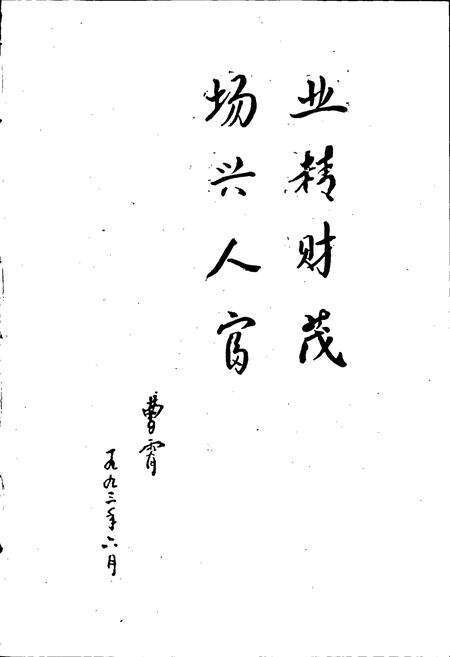 业精财茂
场兴人富
曹霄
一九九三年六月